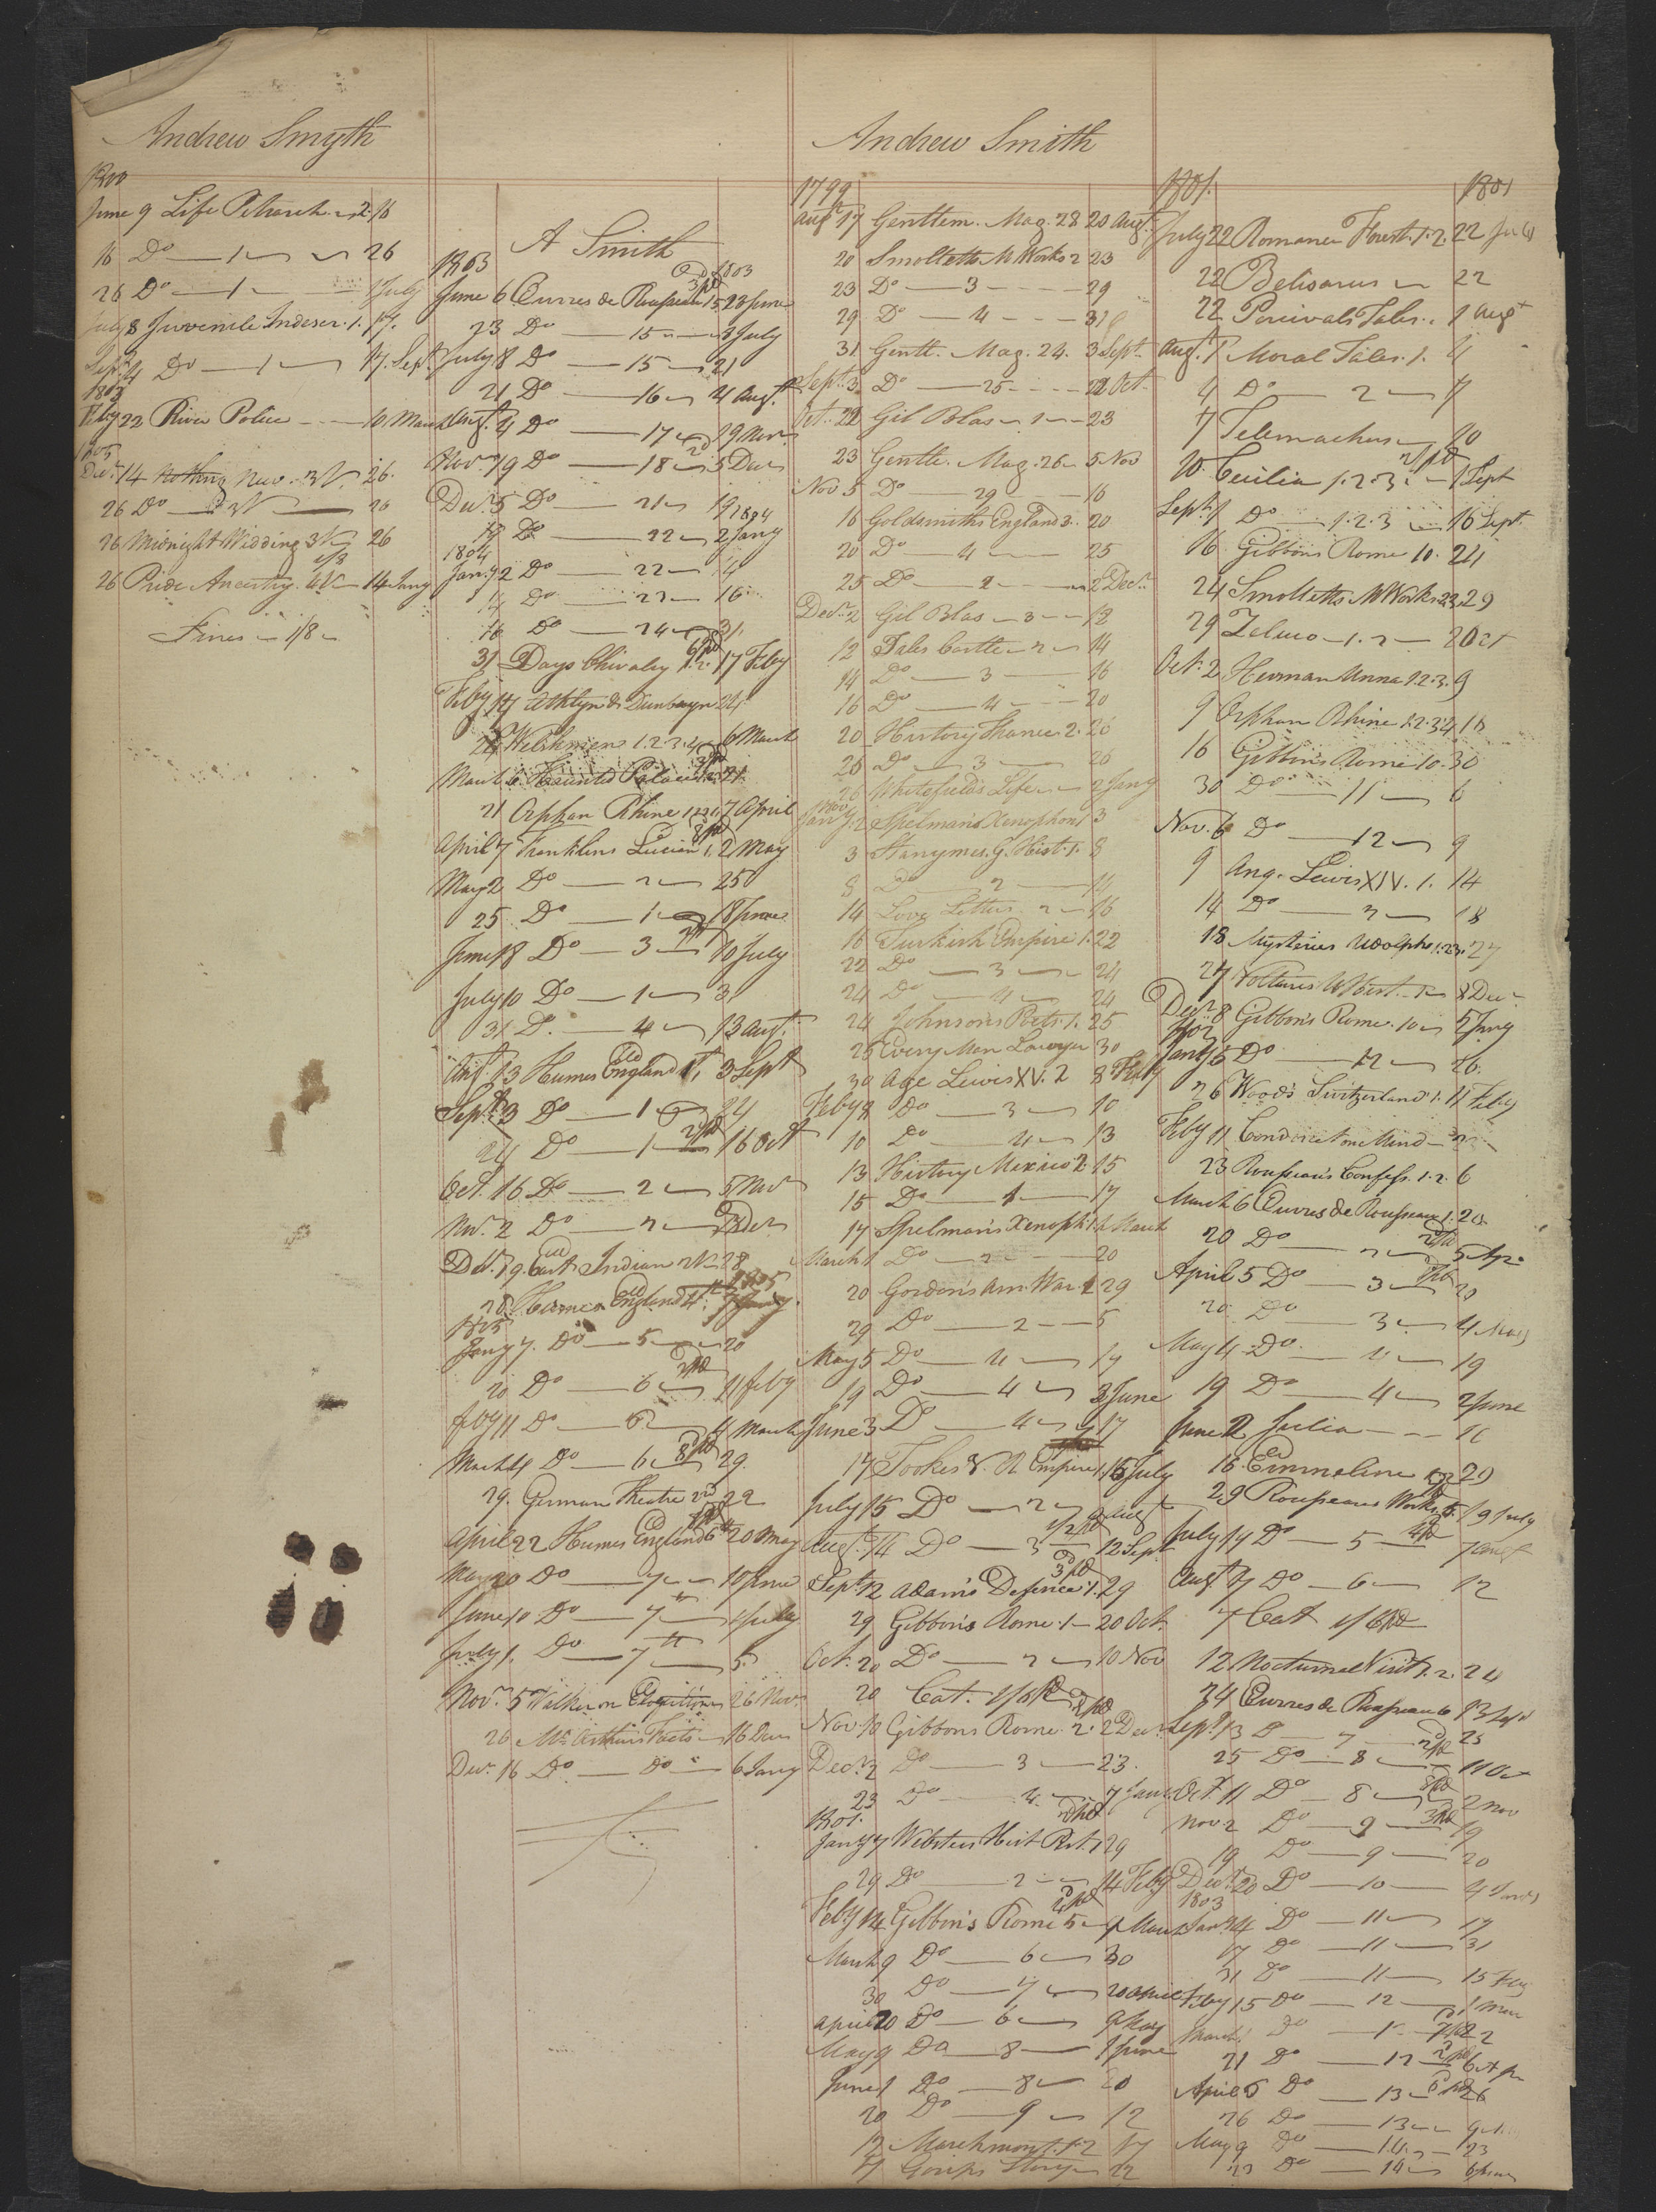 Andrew Smyth
1800
June 9 Life Petrarch 2 16
16 Do 1 26
26 Do 1 July
July 8 Juvenile Indiscr. 1. 17.
Sept. 4 Do 1 17. Sept.
1803
Feby 22 River Police 10 March
1805
Decr. 14 Nothing New. 3 V. 26.
26 Do 3 V 26
26 Midnight Widding 3 V 26
26 Pride Ancestry. 4 V 14 Jany
Fines 1/8
A Smith
1803 1803
June 6 Œuvres de Rousseau 15 23 June
23 Do 15 8 July
July 8 Do 15 21
21 Do 16 4 Augt.
Augt. 4 Do 17 19 Novr
Novr. 19 Do 18 5 Decr
Decr. 5 Do 21 19
1804
19 Do 22 2 Jany
1804
Jany 2 Do 22 14
14 Do 23 16
16 Do 24 31
31 Days Chivalry 1.2. 17 Feby
Feby 17 Athlyn & Dunbayn 24
24 Welshmen 1.2.3.4 6 March
March 6 Haunted Palace 21
21 Orphan Rhine 1 2 3 4 7 April
April 7 Franklins Lucian 1. 2 May
May 2 Do 2 25
25 Do 1 18 June
June 18 Do 3 10 July
July 10 Do 1 31
31 D. 4 13 Augt.
Augt. 13 Humes England 1, 3 Sept
Sept. 3 Do 1 24
24 Do 1 16 Oct
Oct. 16 Do 2 Nov
Nov. 2 Do 2 Decr
Decr. 19. East Indian 2 V 28
1805
28 Humes England 4th. 7 Jany.
1805
Jany 7. Do 5 20
20 Do 6 11 feby
feby 11 Do 6 4 March
March 4 Do 6 29.
29. German Theatre 22
April 22 Humes England 6th 20 May
May 20 Do 7 10 June
June 10 Do 7 1 July
July 1. Do 7th 5.
Novr. 5 Walker on Elocution 26 Novr
26 McArthurs Facts 16 Decr
Decr. 16 Do Do 6 Jany
Andrew Smith
1799
Augt 17 Gentlem. Mag. 28 20 Augt.
20 Smolletts M Works 2 23
23 Do 3 29
29 Do 4 31
31 Gentl. Mag. 24. 3 Sept.
Sept. 3 Do 25 22 Oct.
Oct. 22 Gil Blas 1 23
23 Gentle. Mag. 26 5 Nov
Nov 5 Do 29 16
16 Goldsmiths England 3. 20
20 Do 4 25
25 Do 2 2 Decr.
Decr. 2 Gil Blas 3 12
12 Tales Castle 2 14
14 Do 3 16
16 Do 4 20
20 History France 2. 26
26 Do 3 26
26 Whitefields Life 2 Jany
1800
Jany. 2 Spelmans Xenophon 1 3
3 Stanymes G. Hist. 1. 8
8 Do 2 14
14 Love Letters 2 16
16 Turkish Empire 1. 22
22 Do 3 24
24 Do 4 24
24 Johnsons Poets. 1. 25
25 Every Man Lawyer 30
30 Age Lewis XV. 2 8 Feby
Feby 8 Do 3 10
10 Do 4 13
13 History Mexico 2 15
15 Do 1 17
17 Spelmans Xenoph. 1. 1 March
March 1 Do 2 20
20 Gordons Am. War. 1 29
29 Do 2 5
May 5 Do 4 19
19 Do 4 3 June
June 3 Do 4 17
17 Tookes V. R Empire 1. 15 July
July 15 Do 2 Augt
Augt. 14 Do 3 12 Sept
Sept. 12 Adams Defence 1. 29
29 Gibbons Rome 1 20 Oct.
Oct. 20 Do 2 10 Nov
20 Cat.
Nov. 10 Gibbons Rome. 2. 2 Decr
Decr. 2 Do 3 23.
23 Do 4 7 Jany
1801.
Jany 7 Websters Hist Pest. 1 29
29 Do 2 14 Feby
Feby 14 Gibbons Rome 5 9 March
March 9 Do 6 30
30 Do 7 20 April
April 20 Do 6 9 May
May 9 Do 8 1 June
June 1 Do 8 20
20 Do 9 12
12 Marchmont. 1.2 17
17 Gossips Story 22
1801. 1801
July 22 Romance Forest. 1.2. 22 July
22 Belisarius 22
22 Percivals Tales. 1 Augt
Augt. 1 Moral Tales. 1. 4
4 Do 2 7
7 Telemachus 20
20 Cecilia 1.2.3. 1 Sept
Sept. 1 Do 1.2.3 16 Sept.
16 Gibbons Rome 10. 24
24 Smolletts M Works 2.3 29
29 Zeluco 1.2 2 Oct
Oct. 2 Herman Unna 1.2.3. 9
9 Orphan Rhine 1.2.3.4 16
16 Gibbons Rome 10. 30
30 Do 11 6
Nov. 6 Do 12 9
9 Ang. Lewis XIV. 1. 14
14 Do 2 18
18 Mysteries Udolpho 1.2.3. 27
27 Voltaires U Hist. 1 8 Decr
Decr. 8 Gibbons Rome. 10 5 Jany
1802
Jany 5 Do 12 26.
26 Woods Switzerland 1. 11 Feby
Feby 11 Condorcet on Mind
23 Rousseaus Confess. 1.2. 6
March 6 Œuvres de Rousseau 1. 20
20 Do 2 5 Apr
April 5 Do 3 20
20 Do 3 4 May
May 4 Do 4 19
19 Do 4 2 June
June 2 Julia 16
16 Emmeline 29
29 Rousseaus Works 5. 19 July
July 19 Do 5 7 Augt
Augt 7 Do 6 12
7 Cat
12 Nocturnal Visit 1.2. 24
24 Œuvres de Rousseau 6 13 Sept
Sept. 13 D 7 25
25 Do 8 11 Oct
Oct. 11 Do 8 2 Nov
Nov 2 Do 9 19
19 Do 9 20
Decr. 20 Do 10 4 Jany
1803
Jany 4 Do 11 17
17 Do 11 31
31 Do 11 15 Feby
Feby 15 Do 12 1 Mar
March 1 Do
21 Do 12 6 Apr
April 6 Do 13 26
26 Do 13 9
May 9 Do 14 23
23 Do 14 6 June